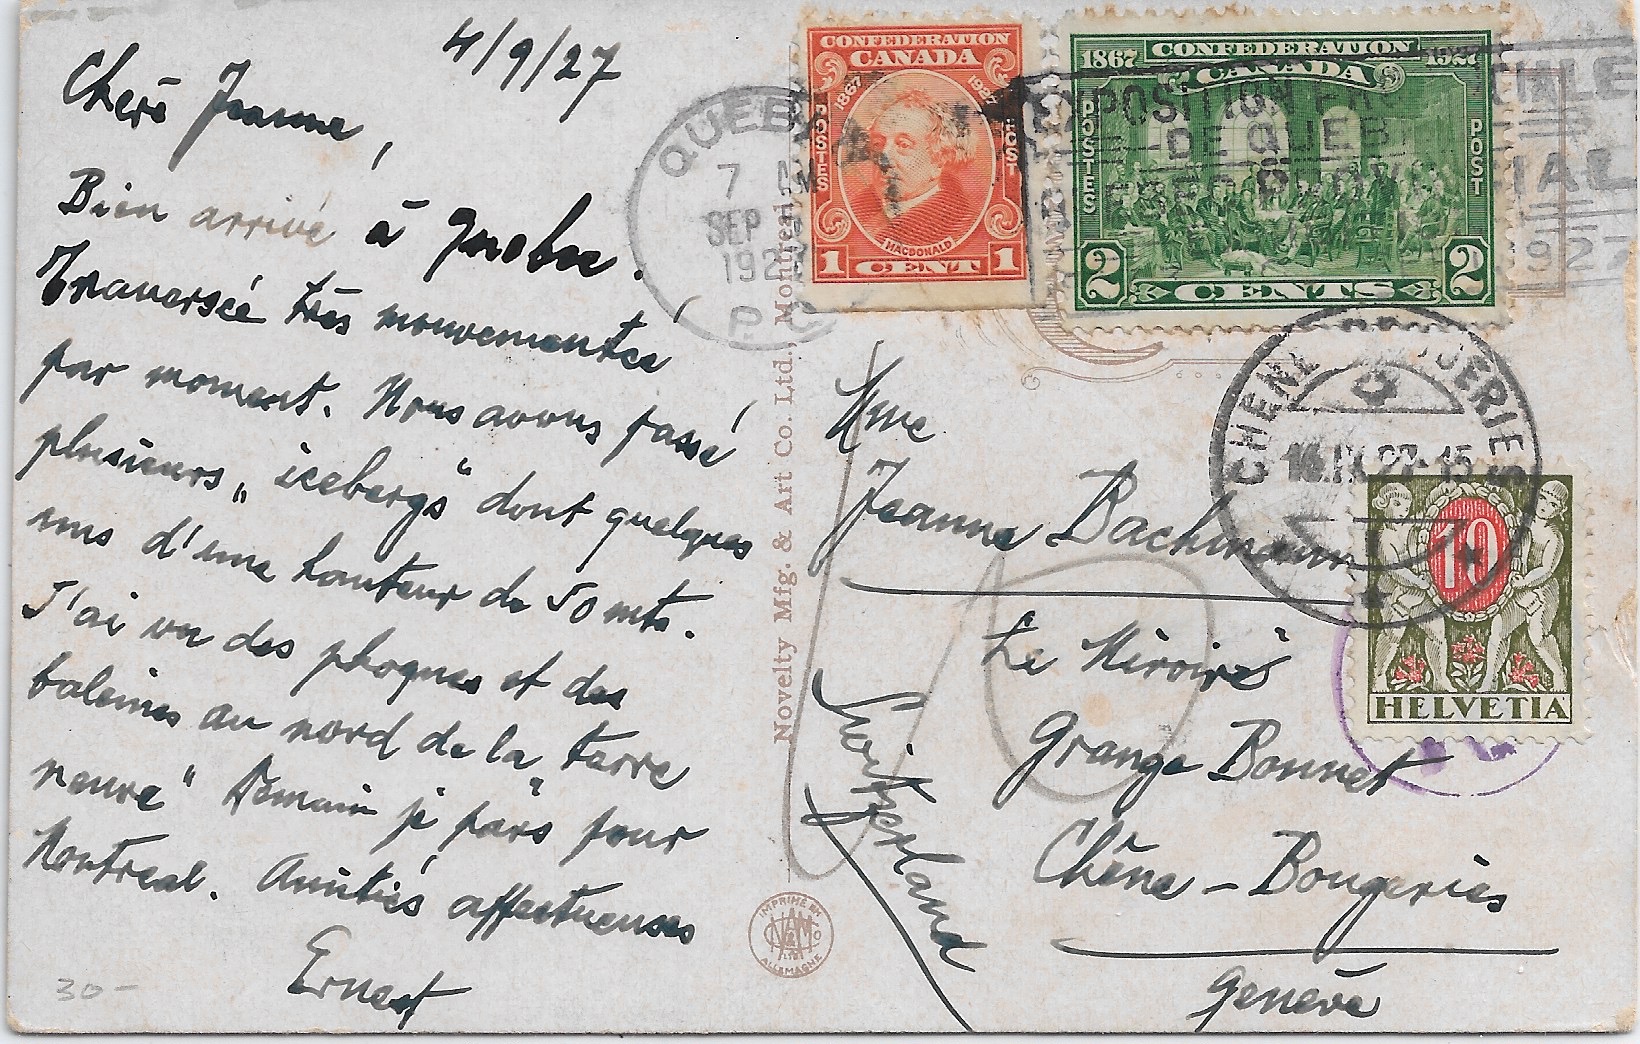 4/9/27
Chère Jeanne,
Bien arrivé à Quebec.
Traversée très mouvementée
par moment. Nous avons passé
plusieurs „icebergs" dont quelques
uns d'une hauteur de 50 mts.
J'ai vu des phoques et des
baleines au nord de la „terre
neuve" Demain je pars pour
Montreal. Amitiés affectueuses
Ernest
30-
QUEBEC
7
SEP
192
P.Q.
CONFEDERATION
CANADA
1867
1927
POSTES
POST
MACDONALD
1 CENT 1
1867 CONFEDERATION 1927
CANADA
POSTES
POST
2 CENTS 2
EXPOSITION PRO
DE QUEBEC
1927
Novelty Mfg. & Art Co. Ltd., Montreal
IMPRIMÉ EN
ALLEMAGNE
CHÊNE-BOUGERIES
16.IX.27-15
10
HELVETIA
Mme
Jeanne Bachmann
Le Miroir
Grange Bonnet
Chêne-Bougeries
Genève
Switzerland